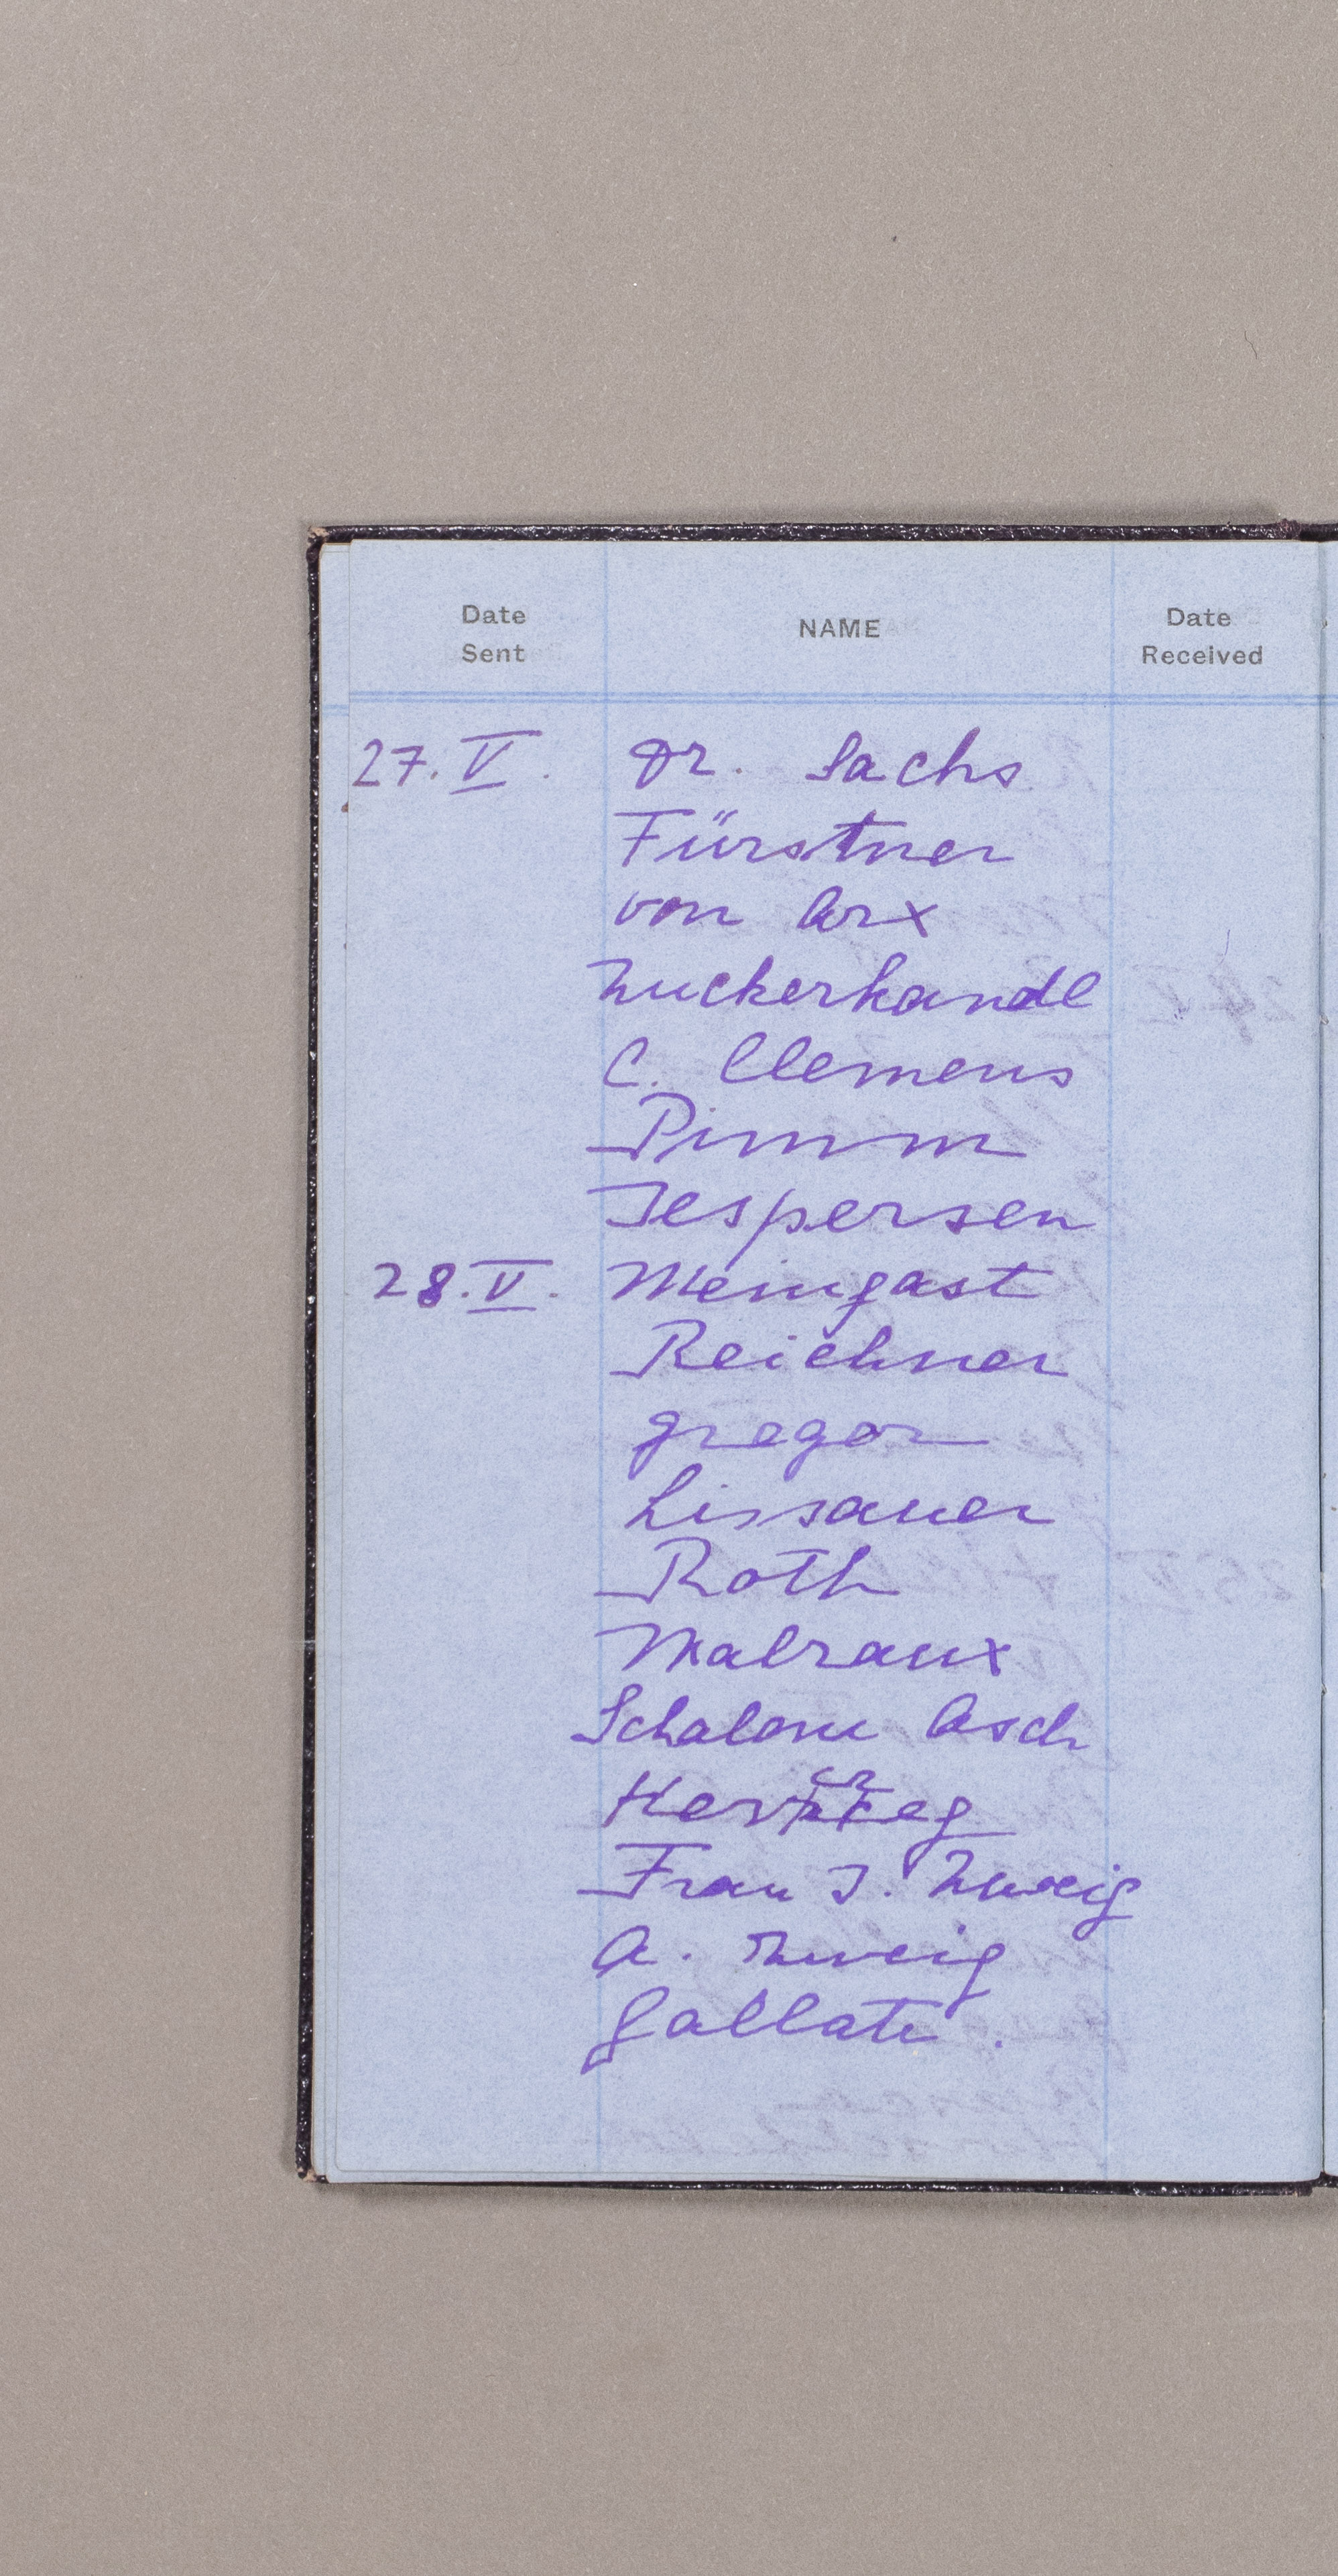 Date Sent NAME Date Received
27. V. Dr. Sachs
Fürstner
von Arx
Zuckerkandl
C. Clemens
Pimm
Jespersen
28. V. Meingast
Reichner
Gregor
Lissauer
Roth
Malraux
Schalom Asch
Frau J. Zweig
A. Zweig
Gallati.